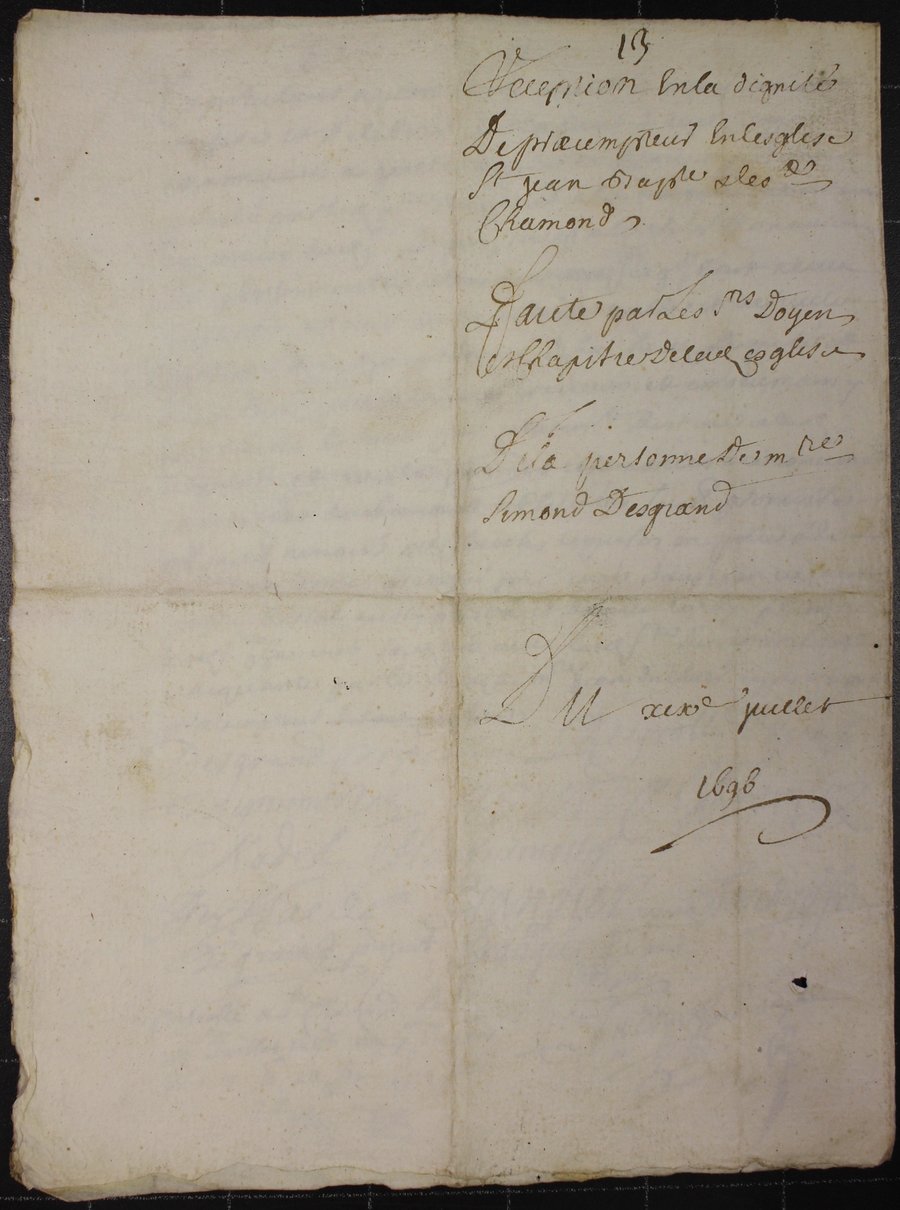 13
Reception En la dignité
De præcempteur En lesglise
St Jean Bapte de st
Chamond
Faite par Les Srs Doyen
et Chapitre de lad esglise
De la personne de mre
Simond Desgrand
Du xixe juillet
1696